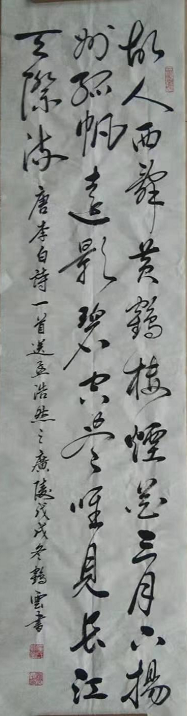 故人西辭黄鶴樓煙花三月下揚
州孤帆遠影碧空盡唯見長江
天際流
唐李白詩一首送孟浩然之廣陵戊戌冬鶴雲書